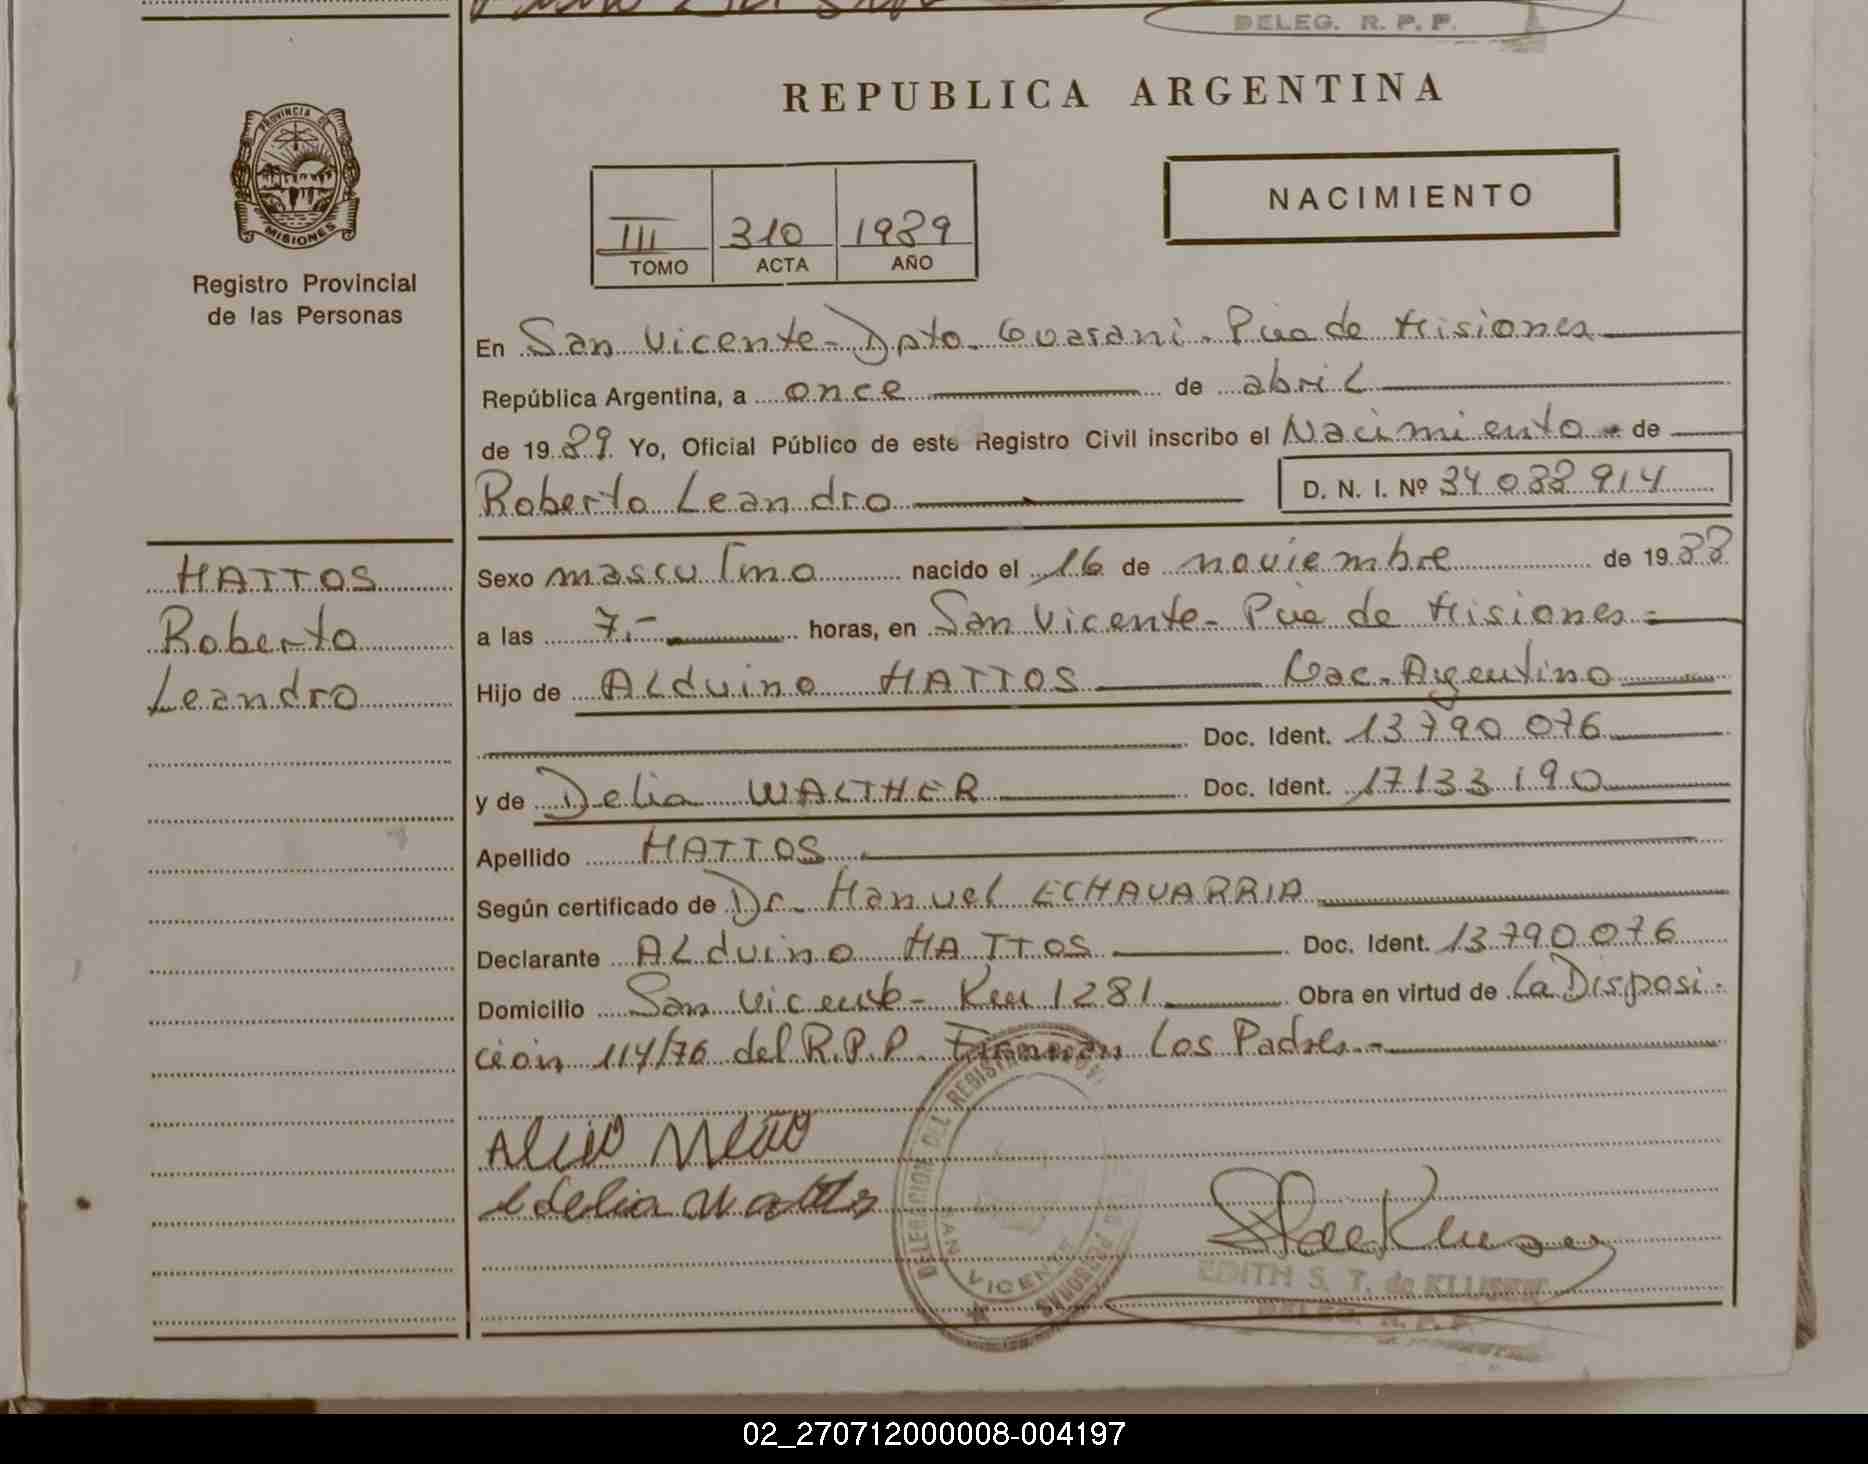 DELEG. R. P. P.
REPUBLICA ARGENTINA
PROVINCIA DE
MISIONES
Registro Provincial
de las Personas
NACIMIENTO
III 310 1989
TOMO ACTA AÑO
En San Vicente - Dpto. Guaraní - Pcia de Misiones
República Argentina, a once de abril
de 1989 Yo, Oficial Público de este Registro Civil inscribo el Nacimiento - de
Roberto Leandro D. N. I. Nº 34 088 914
MATTOS
Roberto
Leandro
Sexo masculino nacido el 16 de noviembre de 1988
a las 7.- horas, en San Vicente - Pcia de Misiones -
Hijo de Alduino MATTOS Nac. Argentino
Doc. Ident. 13 790 076
y de Delia WALTHER Doc. Ident. 17133190
Apellido MATTOS
Según certificado de Dr. Manuel ECHAVARRIA
Declarante Alduino MATTOS Doc. Ident. 13 790 076
Domicilio San Vicente - Km 1281 Obra en virtud de La Disposi-
ción 114/76 del R.P.P. Firman Los Padres.-
Delia Mattos
DELEGACION DEL REGISTRO PERSONAS
SAN VICENTE
EDITH S. T. de KLUSENER
DELEG. R. P. P.
02_270712000008-004197